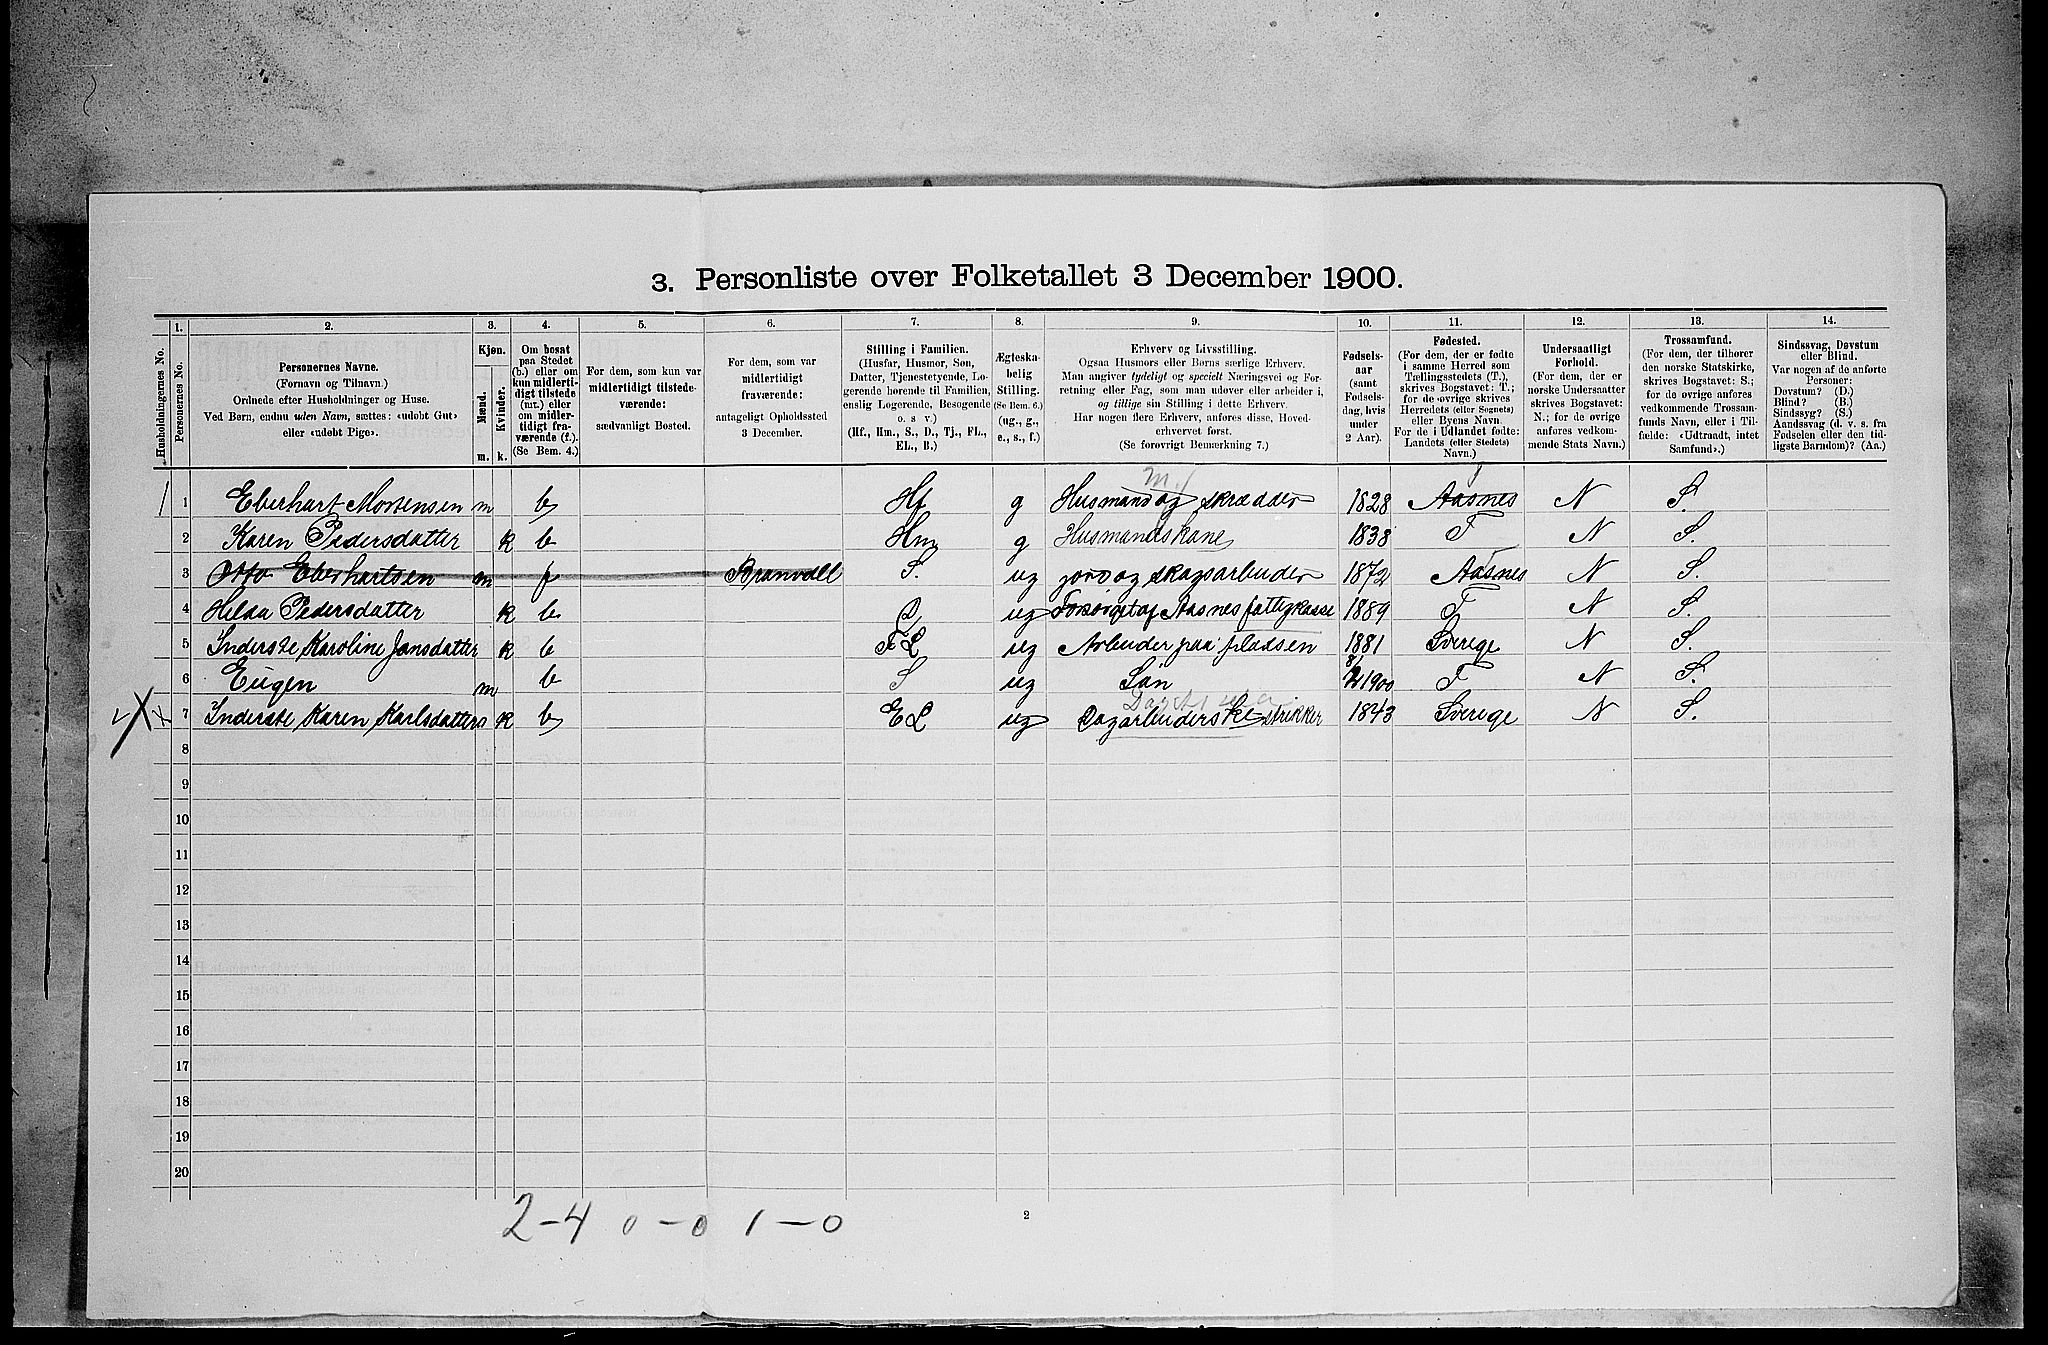 3. Personliste over Folketallet 3 December 1900.
1. 2. 3. 4. 5. 6. 7. 8. 9. 10. 11. 12. 13. 14.
Husholdningernes No.
Personernes No.
Personernes Navne.
(Fornavn og Tilnavn.)
Ordnede efter Husholdninger og Huse.
Ved Børn, endnu uden Navn, sættes: «udøbt Gut»
eller «udøbt Pige».
Kjøn.
Mænd.
Kvinder.
m. k.
Om bosat
paa Stedet
(b.) eller om
kun midlerti-
digt tilstede
(mt.) eller
om midler-
tidigt fra-
værende (f.).
(Se Bem. 4.)
For dem, som kun var
midlertidigt tilstede-
værende:
sædvanligt Bosted.
For dem, som var
midlertidigt
fraværende:
antageligt Opholdssted
3 December.
Stilling i Familien.
(Husfar, Husmor, Søn,
Datter, Tjenestetyende, Lo-
gerende hørende til Familien,
enslig Logerende, Besøgende
o. s v.)
(Hf., Hm., S., D., Tj., FL.,
EL., B.)
Ægteska-
belig
Stilling.
(Se Bem. 6.)
(ug., g.,
e., s., f.)
Erhverv og Livsstilling.
Ogsaa Husmors eller Børns særlige Erhverv.
Man angiver tydeligt og specielt Næringsvei og For-
retning eller Fag, som man udøver eller arbeider i,
og tillige sin Stilling i dette Erhverv.
Har nogen flere Erhverv, anføres disse, Hoved-
erhvervet først.
(Se forøvrigt Bemerkning 7.)
Fødsels-
aar
(samt
Fødsels-
dag, hvis
under
2 Aar).
Fødested.
(For dem, der er fødte
i samme Herred som
Tællingsstedets (T.),
skrives Bogstavet: T.;
for de øvrige skrives
Herredets (eller Sognets)
eller Byens Navn.
For de i Udlandet fødte:
Landets (eller Stedets)
Navn.)
Undersaatligt
Forhold.
(For dem, der er
norske Undersaatter
skrives Bogstavet:
N.; for de øvrige
anføres vedkom-
mende Stats Navn.)
Trossamfund.
(For dem, der tilhører
den norske Statskirke,
skrives Bogstavet: S.;
for de øvrige anføres
vedkommende Trossam-
funds Navn, eller i Til-
fælde: «Udtraadt, intet
Samfund».)
Sindssvag, Døvstum
eller Blind.
Var nogen af de anførte
Personer:
Døvstum? (D.)
Blind? (B.)
Sindssyg? (S.)
Aandssvag (d. v. s. fra
Fødselen eller den tid-
ligste Barndom)? (Aa.)
1 1 Eberhart Mortensen m b Hf g Husmand og skrædder 1828 Aasnes N S.
2 Karen Pedersdatter k b Hm g Husmandskone 1838 T N S.
3 Otto Eberhartsen m f Branvoll S. ug jord og skogsarbeider 1872 Aasnes N S.
4 Helda Pedersdatter k b L ug Forsørget af Aasnes fattigkasse 1889 T N S.
5 Inderste Karoline Jansdatter k b FL ug Arbeider paa pladsen 1881 Sverige N S.
6 Eugen m b S ug Søn 1900 T N S.
7 Inderste Karen Karlsdatter k b EL ug Dagarbeiderske strikker 1843 Sverige N S.
8
9
10
11
12
13
14
15
16
17
18
19
20
2-4 0-0 1-0
2